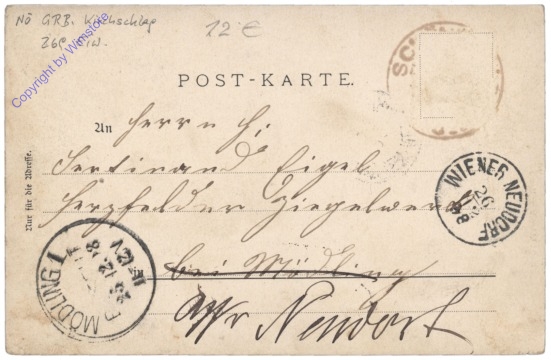 NÖ GRB. Kirchschlag
12 €
Copyright by Wimstore
POST-KARTE.
An Herrn H:
Ferdinand Eigel
Herzfelder Ziegelwerk
bei Mödling
Wr Neudorf
Nur für die Adresse.
WIENER NEUDORF
26
98
MÖDLING 1